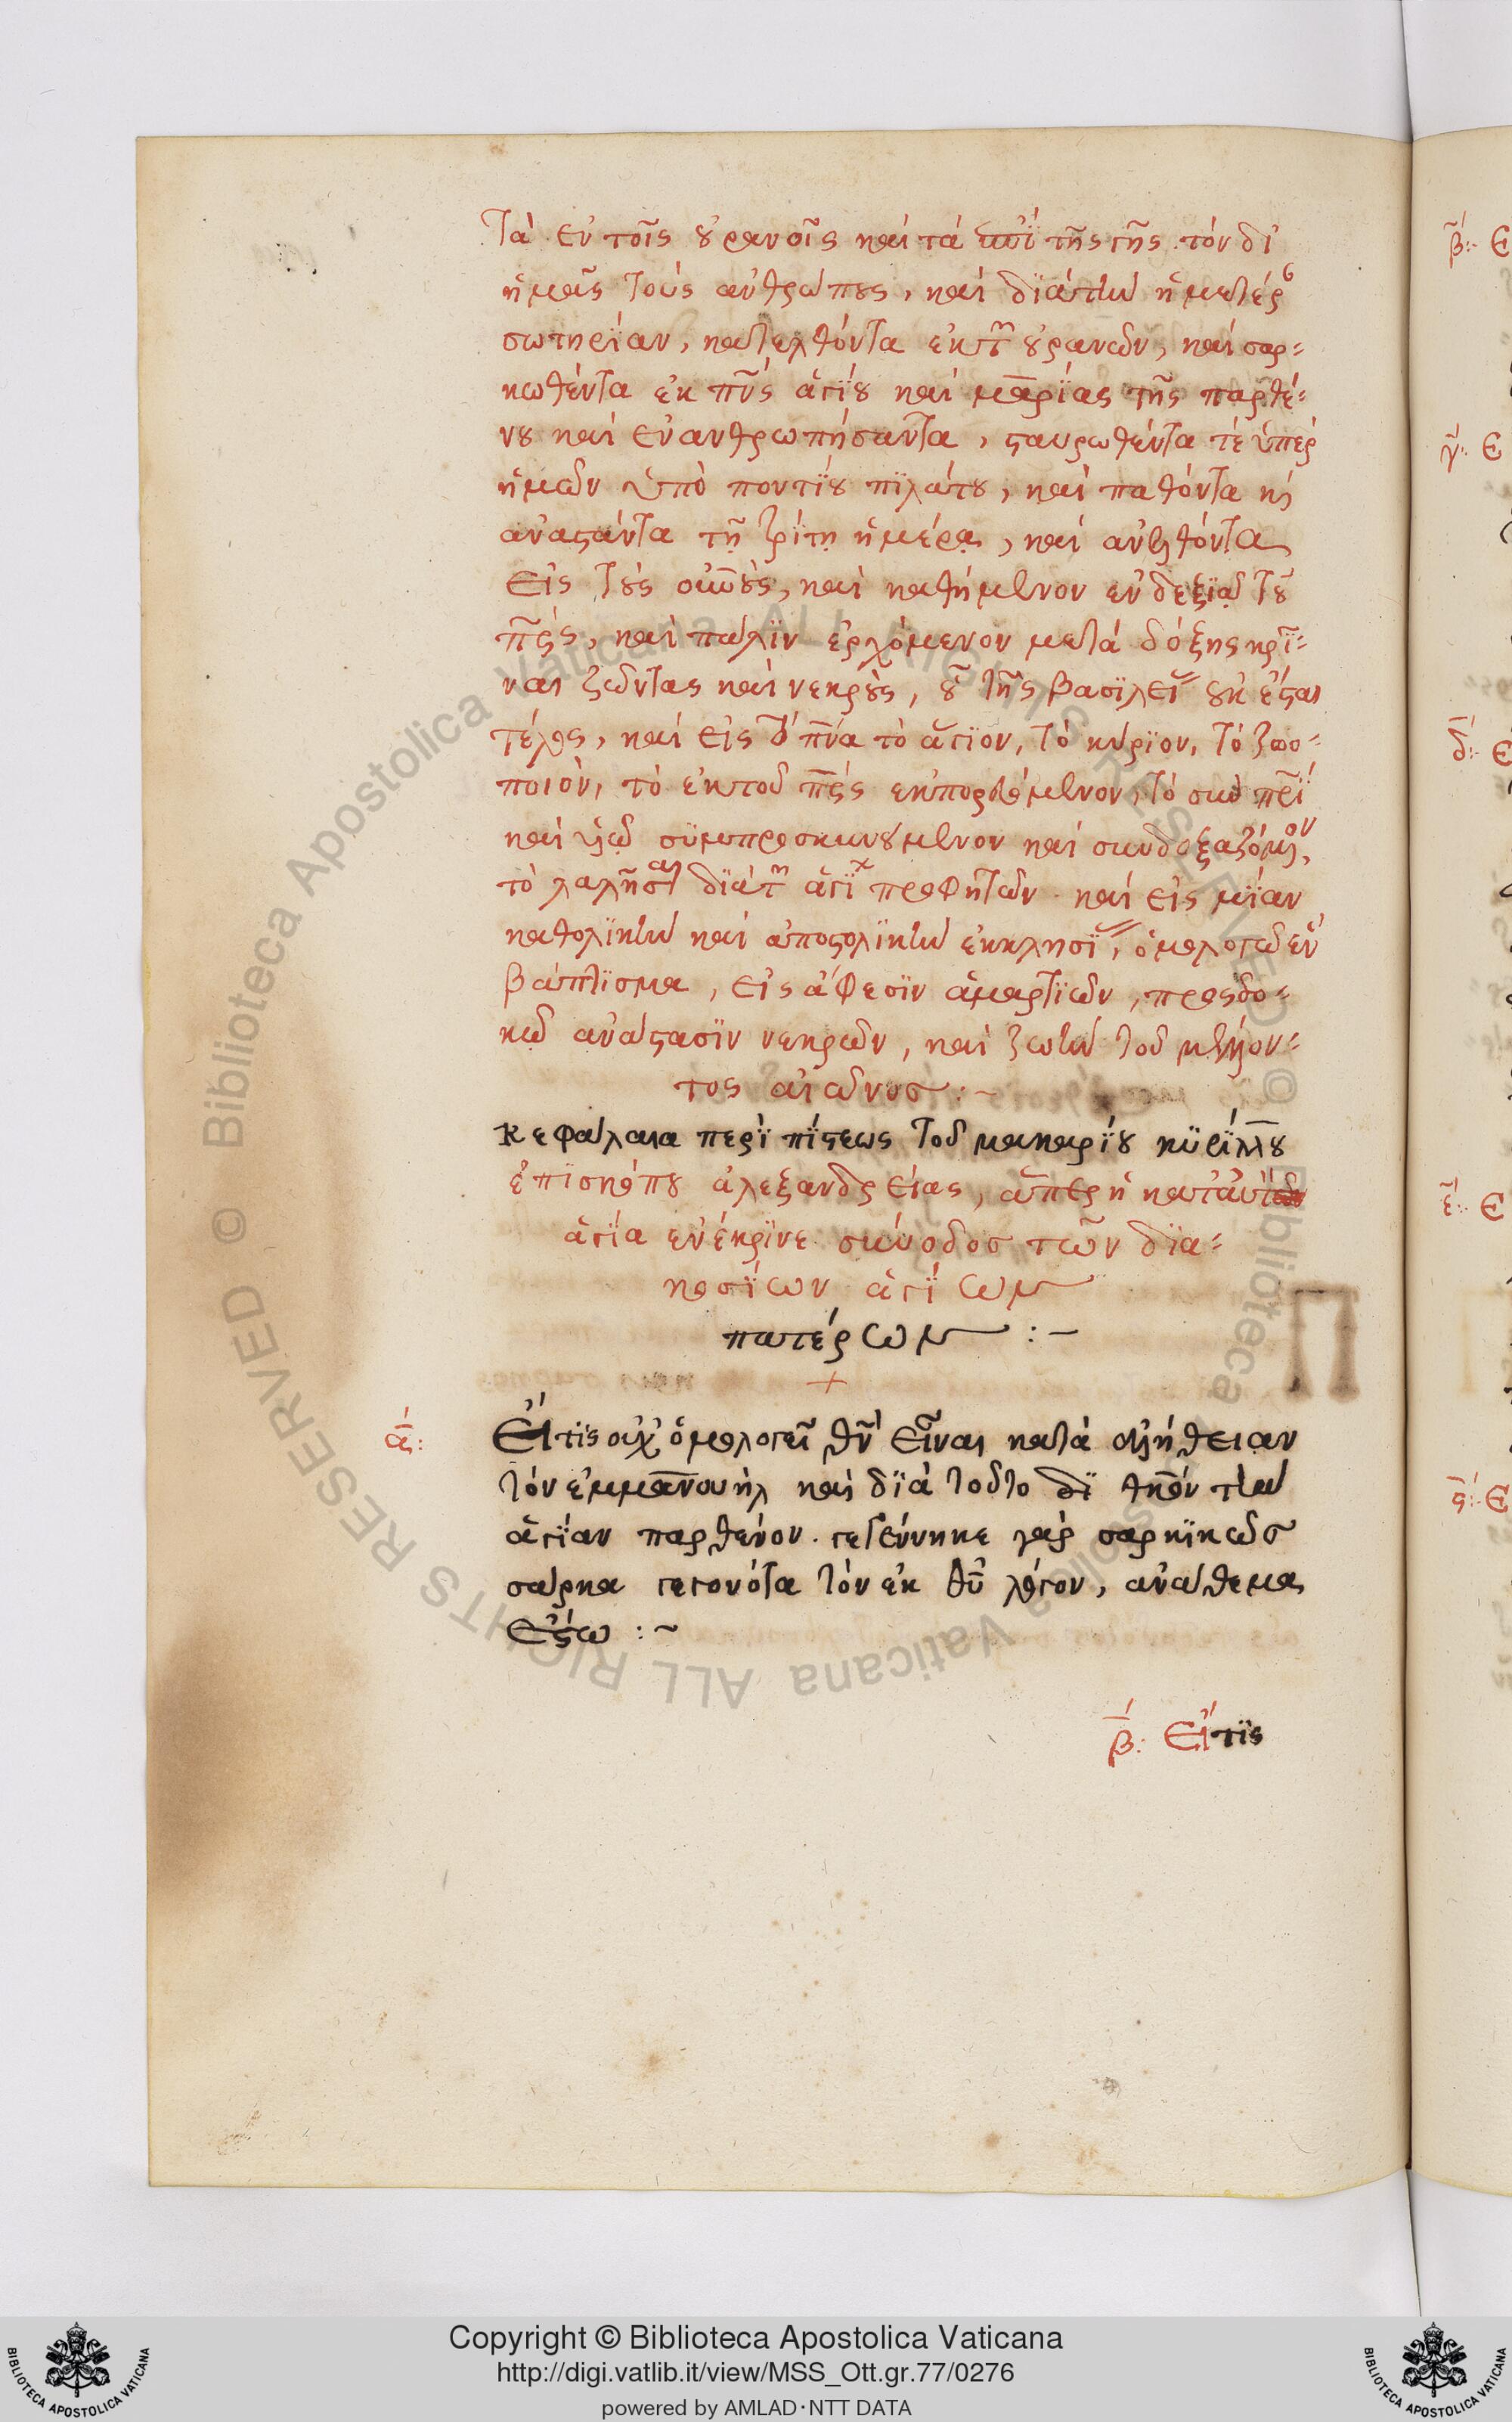 Τὰ ἐν τοῖς οὐρανοῖς καὶ τὰ ἐπὶ τῆς γῆς. τὸν δι'
ἡμᾶς τοὺς ἀνθρώπους, καὶ δϊὰ τὴν ἡμετέρ
σωτηρΐαν, κατελθόντα ἐκ τ οὐρανῶν, καὶ σαρ=
κωθέντα ἐκ πνς ἁγΐου καὶ μαρΐας τῆς παρθέ=
νου καὶ ἐνανθρωπήσαντα, σταυρωθέντα τὲ ὑπὲρ
ἡμῶν ὑπὸ ποντΐου πϊλάτου, καὶ παθόντα κὶ
ἀναστάντα τῇ τρΐτῃ ἡμέρᾳ, καὶ ἀνελθόντα
Εἰς τοὺς οὐνοὺς, καὶ καθήμενον ἐν δεξϊᾷ τοῦ
πρς, καὶ πάλϊν ἐρχόμενον μετὰ δόξης κρῖ=
ναι ζῶντας καὶ νεκροὺς, οὗ τῆς βασϊλεί οὐκ ἔσται
τέλος, καὶ εἰς τὸ πνα τὸ ἅγϊον, τὸ κύρϊον, τὸ ζωο=
ποιὸν, τὸ ἐκ τοῦ πρς ἐκπορευόμενον, τὸ σὺν πρϊ
καὶ υἱῷ σϋμπροσκυνούμενον καὶ συνδοξαζόμεν,
τὸ λαλῆσαν δϊὰ τ ἁγϊ προφητῶν. καὶ εἰς μΐαν
καθολϊκὴν καὶ ἀποστολϊκὴν ἐκκλησϊ, ὁμολογῶ ἓν
βάπτϊσμα, εἰς ἄφεσϊν ἁμαρτϊῶν, προσδο=
κῶ ἀνάστασϊν νεκρῶν, καὶ ζωὴν τοῦ μέλλον=
τος αἰῶνος :~
Κεφάλαια περὶ πΐστεως τοῦ μακαρΐου κϋρΐλλου
ἐπϊσκόπου ἀλεξανδρείας, ἅπερ ἡ
ἁγΐα ἐνέκρϊνε σύνοδος τῶν δϊα=
κοσΐων ἁγΐων
πατέρων :~
+
ᾱ: Εἴ τϊς οὐχ ὁμολογεῖ θν εἶναι κατὰ ἀλήθειαν
τὸν ἐμμανουὴλ καὶ δϊὰ τοῦτο θκον τὴν
ἁγΐαν παρθένον. γεγέννηκε γὰρ σαρκϊκῶς
σάρκα γεγονότα τὸν ἐκ θυ λόγον, ἀνάθεμα
ἔστω :~
β̄: Εἴ τϊς
β̄:~ Ε
γ̄: Ε
δ̄: Ε
ε̄: Ε
ς̄: Ε
Copyright © Biblioteca Apostolica Vaticana
http://digi.vatlib.it/view/MSS_Ott.gr.77/0276
powered by AMLAD·NTT DATA
BIBLIOTECA APOSTOLICA VATICANA
BIBLIOTECA APOSTOLICA VATICANA
© Biblioteca Apostolica Vaticana ALL RIGHTS RESERVED © Biblioteca Apostolica Vaticana ALL RIGHTS RESERVED